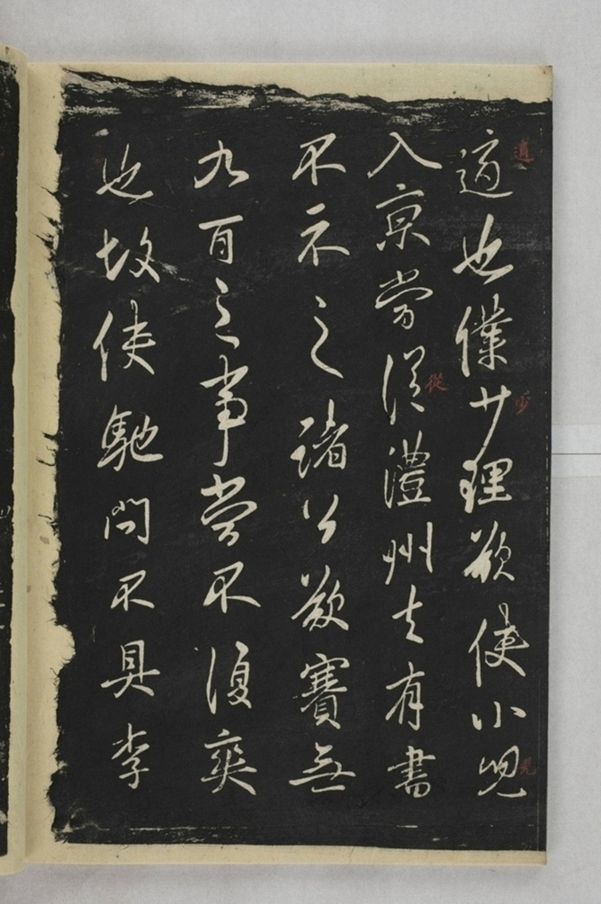 適也僕少理欲使小兒
入京當從澧州去有書
不示之諸公欲賽無
九百之事當不復爽
也故使馳問不具李
少
兒
從